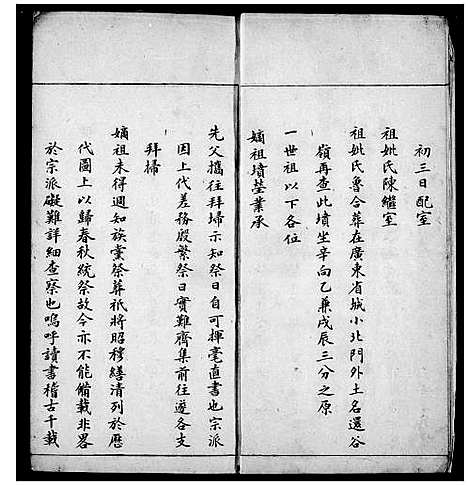 初三日配室
祖妣氏陳繼室
祖妣氏魯合葬在廣東省城小北門外土名還谷
嶺再查此墳坐辛向乙兼戌辰三分之原
一世祖以下各位
嫡祖墳塋業承
先父攜往拜埽示知祭日自可揮毫直書也宗派
因上代差務殷繁祭日實難齊集前往邊各支
拜掃
嫡祖未得週知族黨祭葬祇將昭穆繕清列於歷
代圖上以歸春秋統祭故今亦不能備載非畧
於宗派礙難詳細查察也嗚呼讀書稽古千載